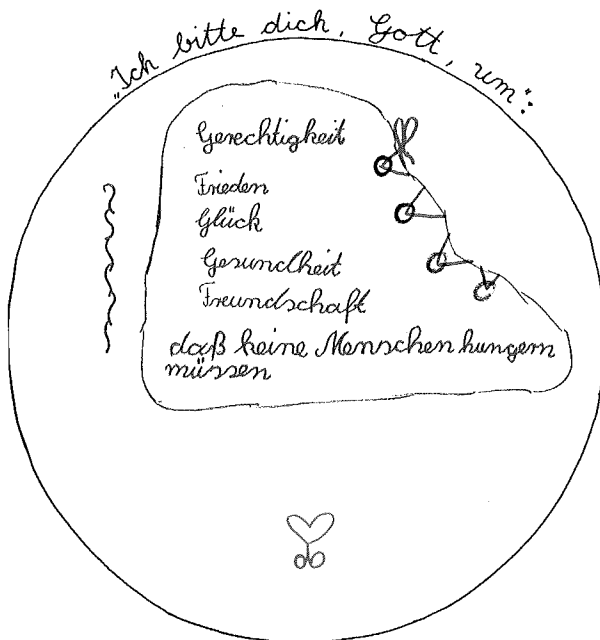 "Ich bitte dich, Gott, um":
Gerechtigkeit
Frieden
Glück
Gesundheit
Freundschaft
daß keine Menschen hungern
müssen